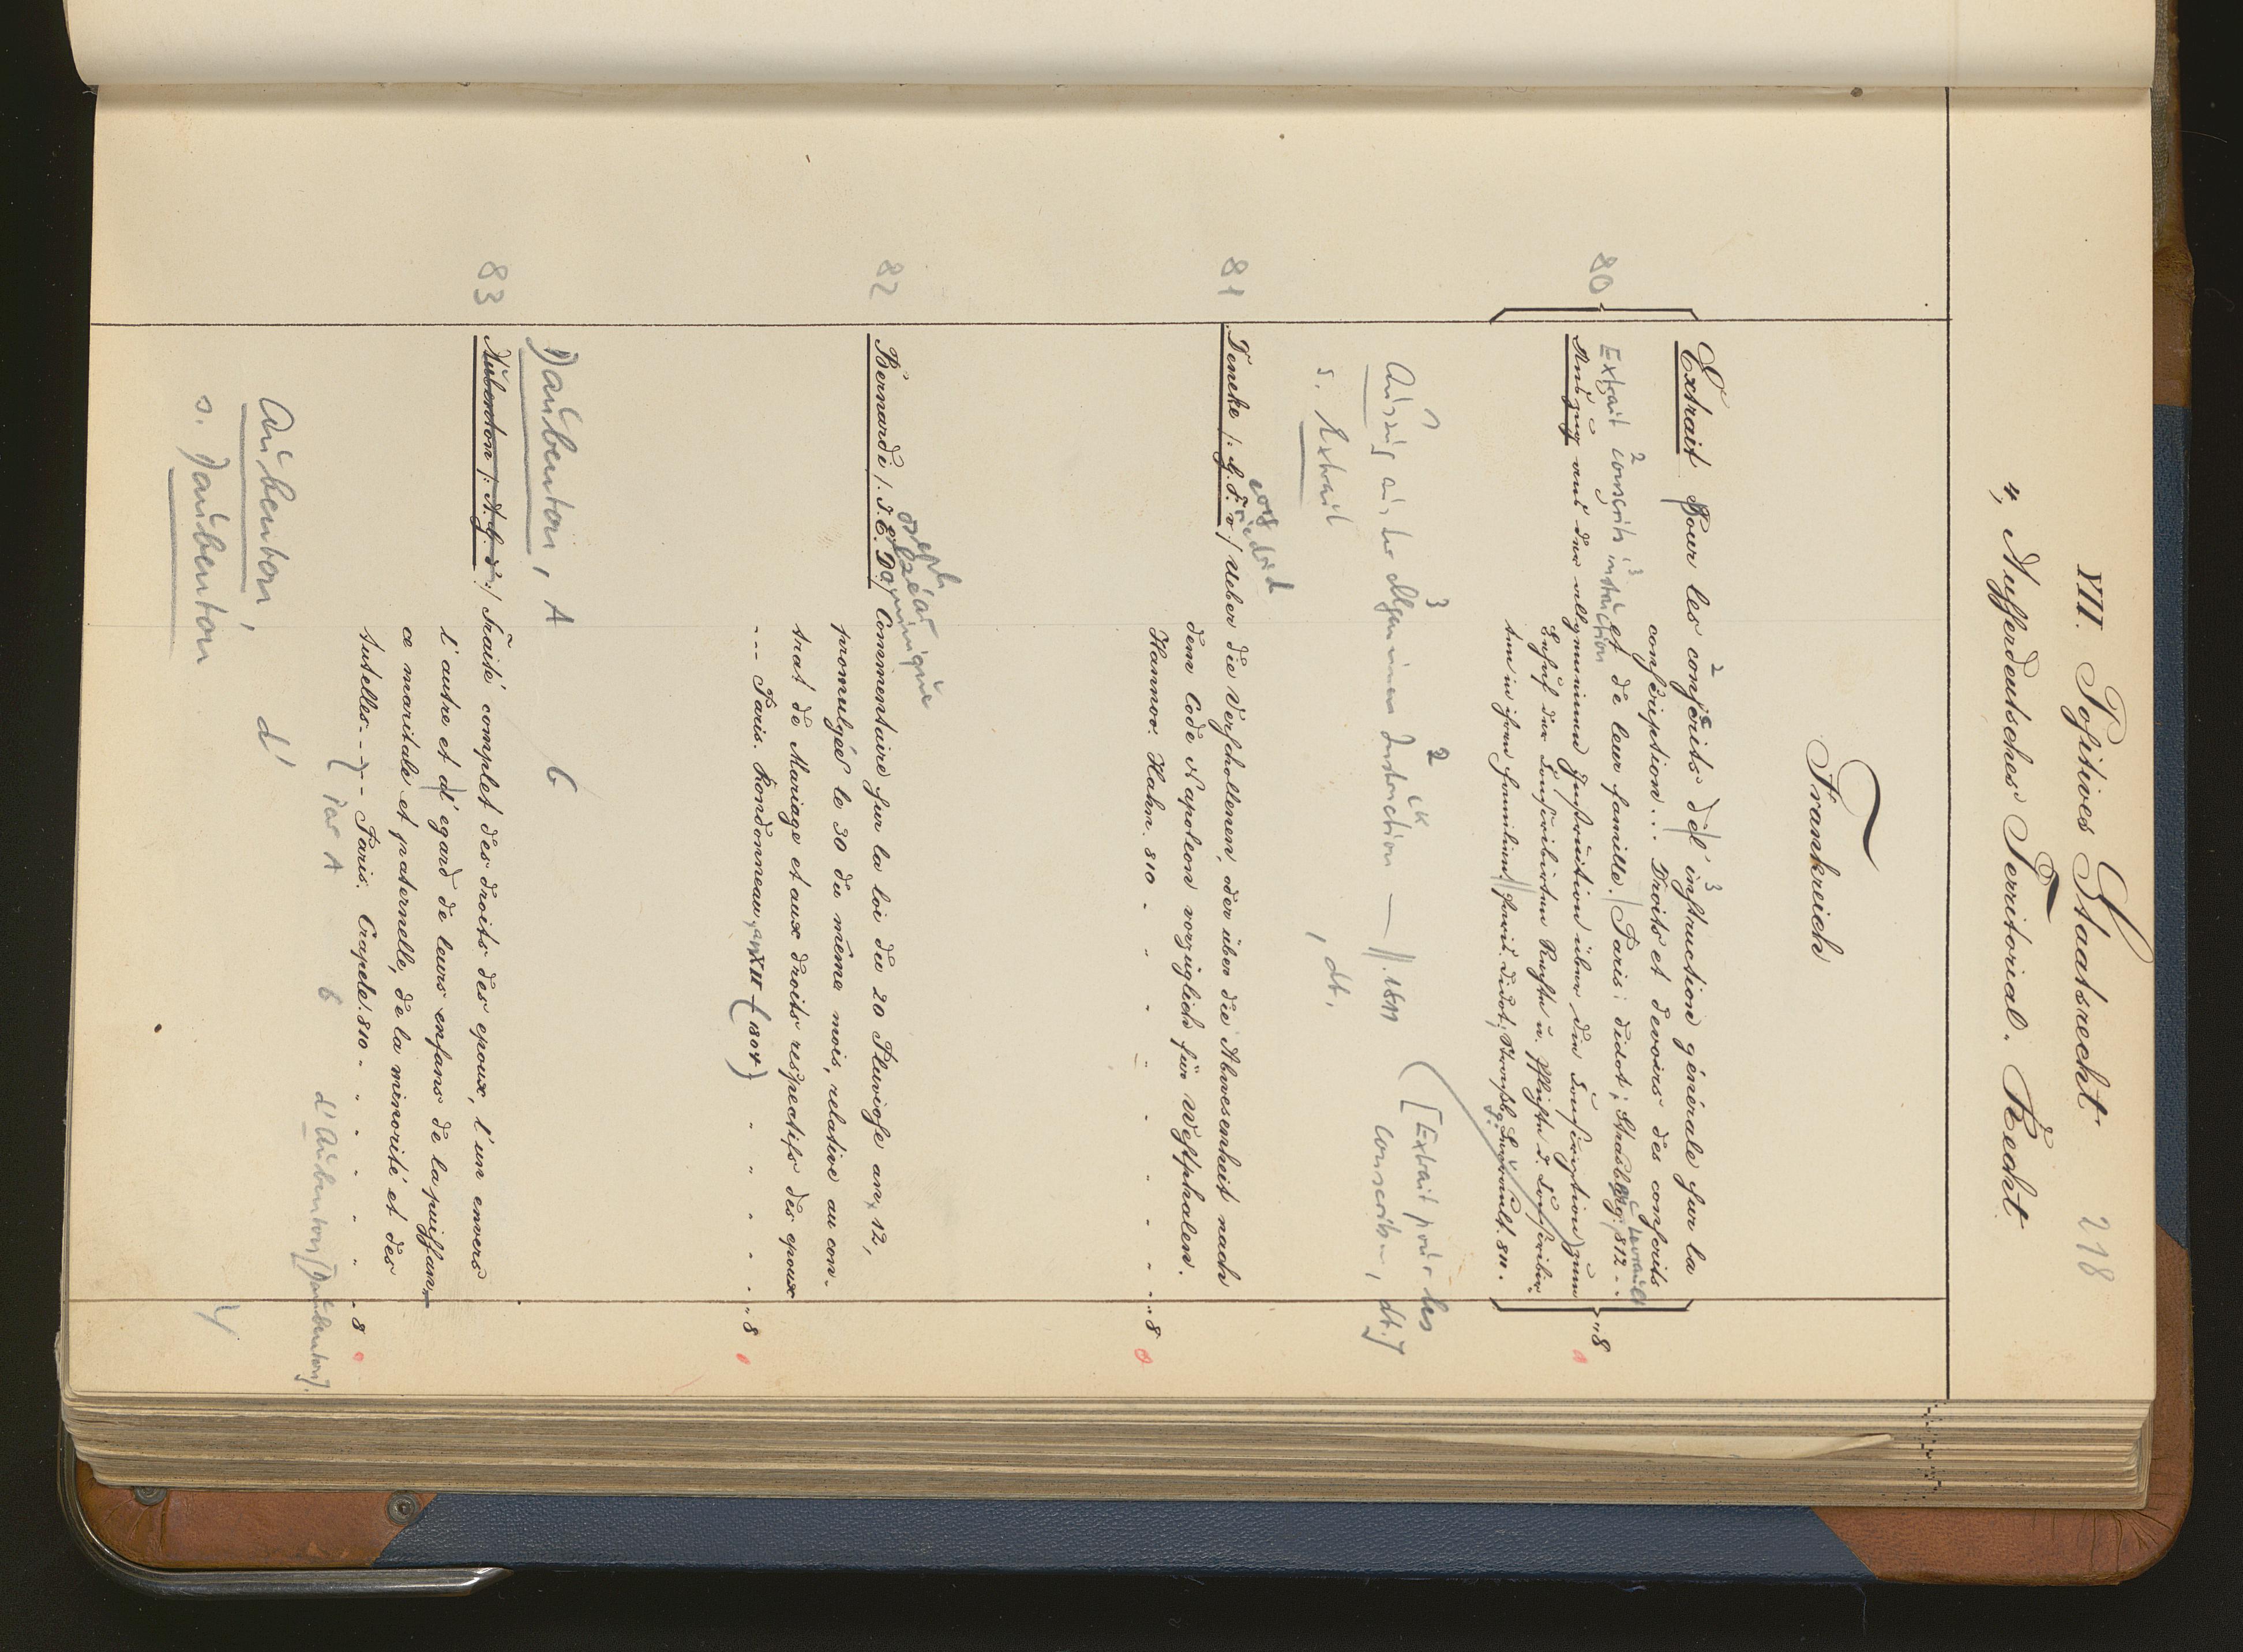 VII. Positives Staatsrecht. 218
4, Ausserdeutsches Territorial-Recht.
Frankreich
80
Extrait pour les conscrits de l'instruction générale sur la
conscription... Droits et devoirs des conscrits
et de leur famille. Paris: Didot; Strasbourg: Levrault 812 - -
Extrait conscrits instruction
Auszug aus der allgemeinen Instruction über die Conscription zum
Behuf der Conscribirten Rechte u. Pflichten d. Conscribir-
ten in ihren Familien. Paris. Didot; Strassb. Levrault. 811. " 8
Auszug aus der allgemeinen Instruction — // . 1811 [Extrait pour les
s. Extrait , dt. conscrits -, dt.]
81
Deneke /: G. F. v./ Ueber die Verschollenen, oder über die Abwesenheit nach
dem Code Napoleon vorzüglich für Westphalen.
Hannov. Hahn. 810 - " - " - " - " - " 8
82
oseph lzéar ominique
Bernardi /: J. E. D./ Commentaire sur la loi du 20 Pluviose an 12,
promulgée le 30 du même mois, relative au con-
trat de Mariage et aux droits respectifs des epoux
--- Paris. Rondonneau, an XII (1804) " - " - " - " 8
Daubenton, A G
83
Aubenton /: A. G. d':/ Traité complet des droits des epoux, l'un envers
l'autre et à l'égard de leurs enfans de la puissan-
ce maritale et paternelle, de la minorité et des
tutelles. --- Paris. Crapelet. 810 - " - " - " - " 8
Par A G d'Aubenton [Daubenton].
Aubenton, d'
s. Daubenton